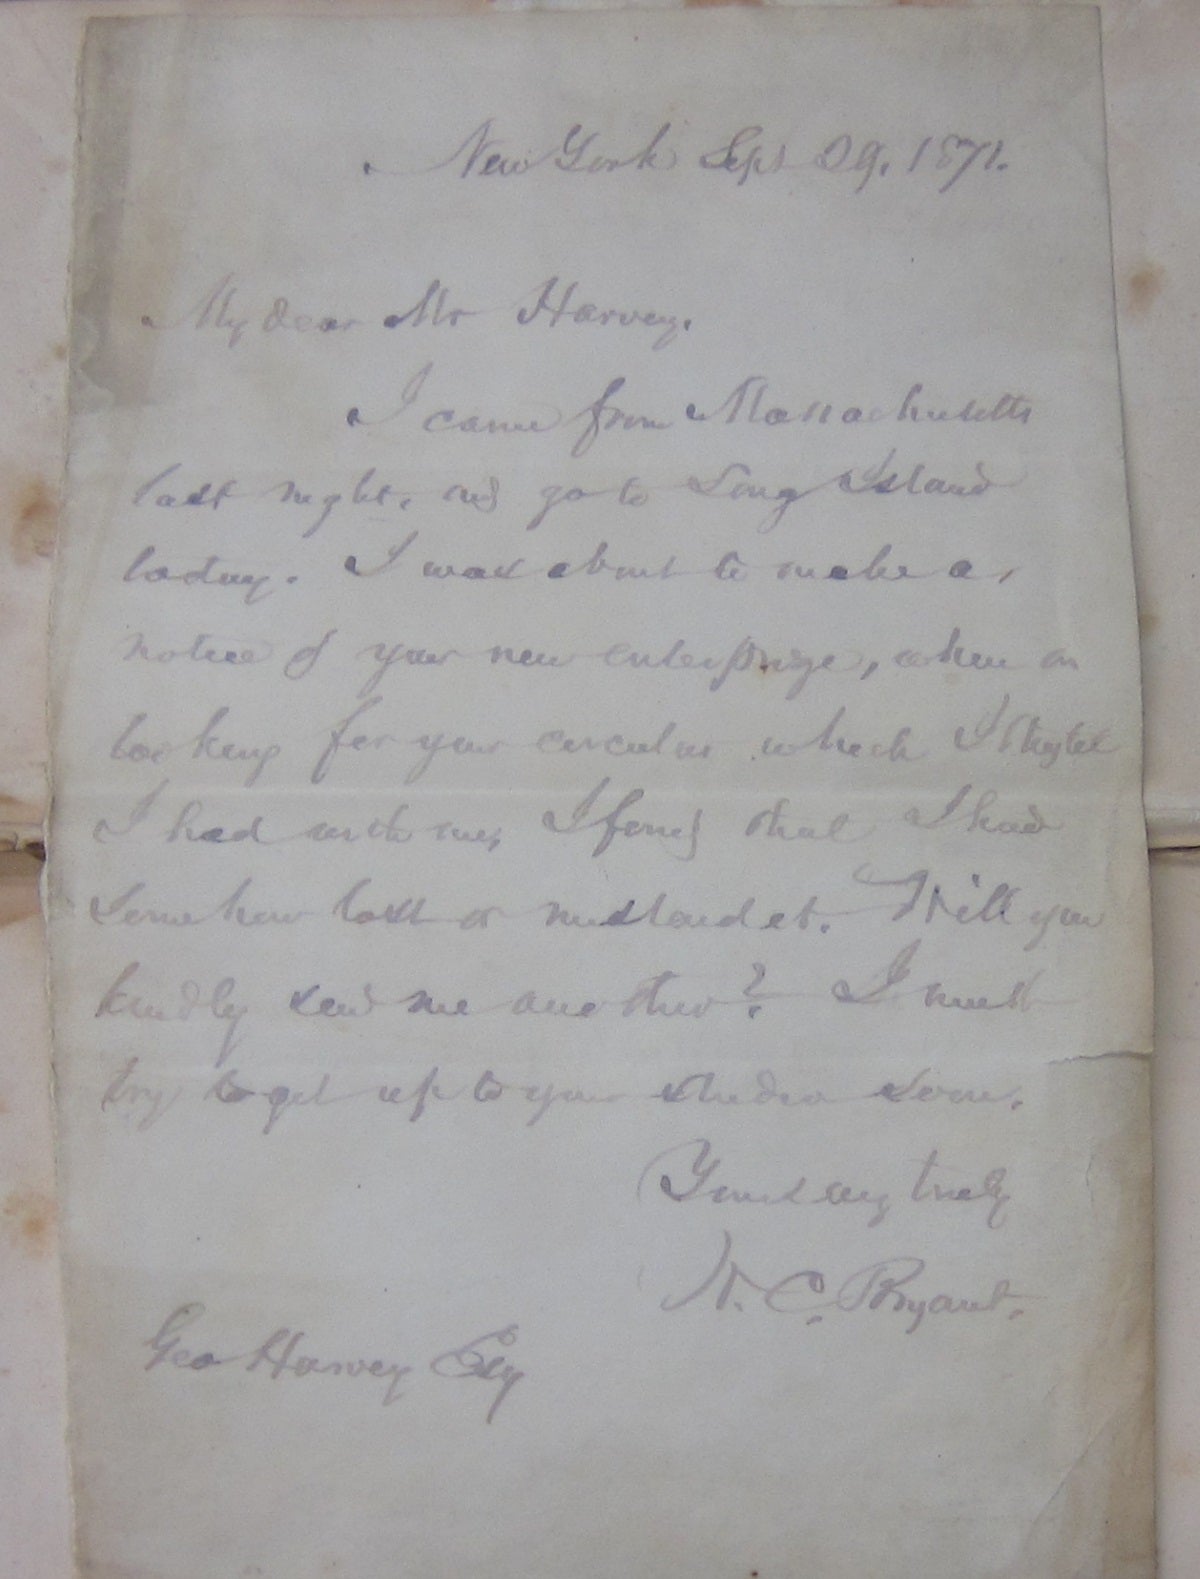 New York Sept 29. 1871.
My dear Mr Harvey.
I came from Massachusetts
last night, and go to Long Island
today. I was about to make a
notice of your new enterprize, when on
looking for your circular which I thought
I had with me, I found that I had
somehow lost or mislaid it. Will you
kindly send me another? I must
try to get up to your studio soon.
Yours very truly
W. C. Bryant.
Geo Harvey Esq